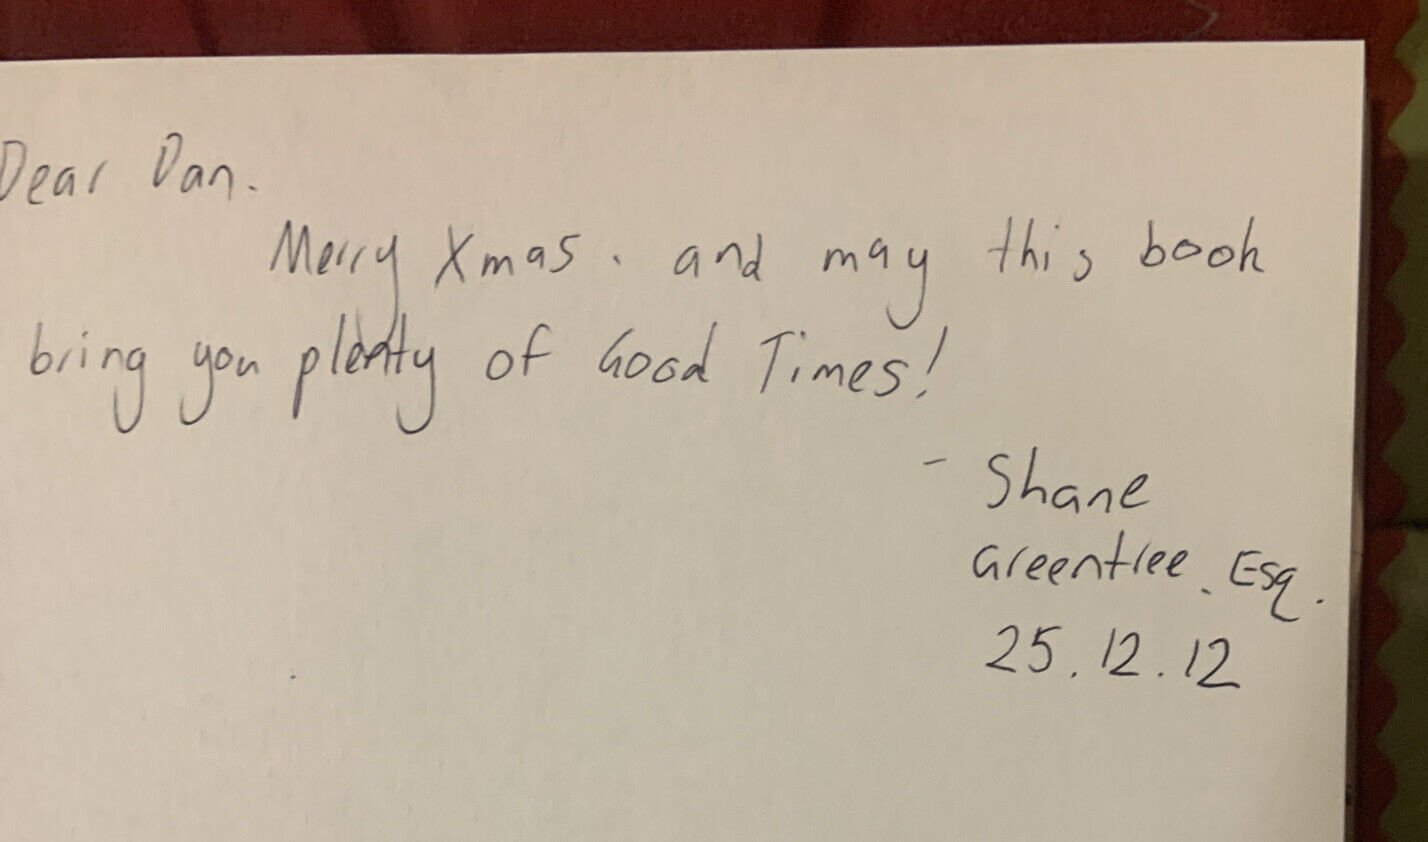 Dear Dan.
Merry Xmas. and may this book
bring you plenty of Good Times!
- Shane
Greentree. Esq.
25.12.12